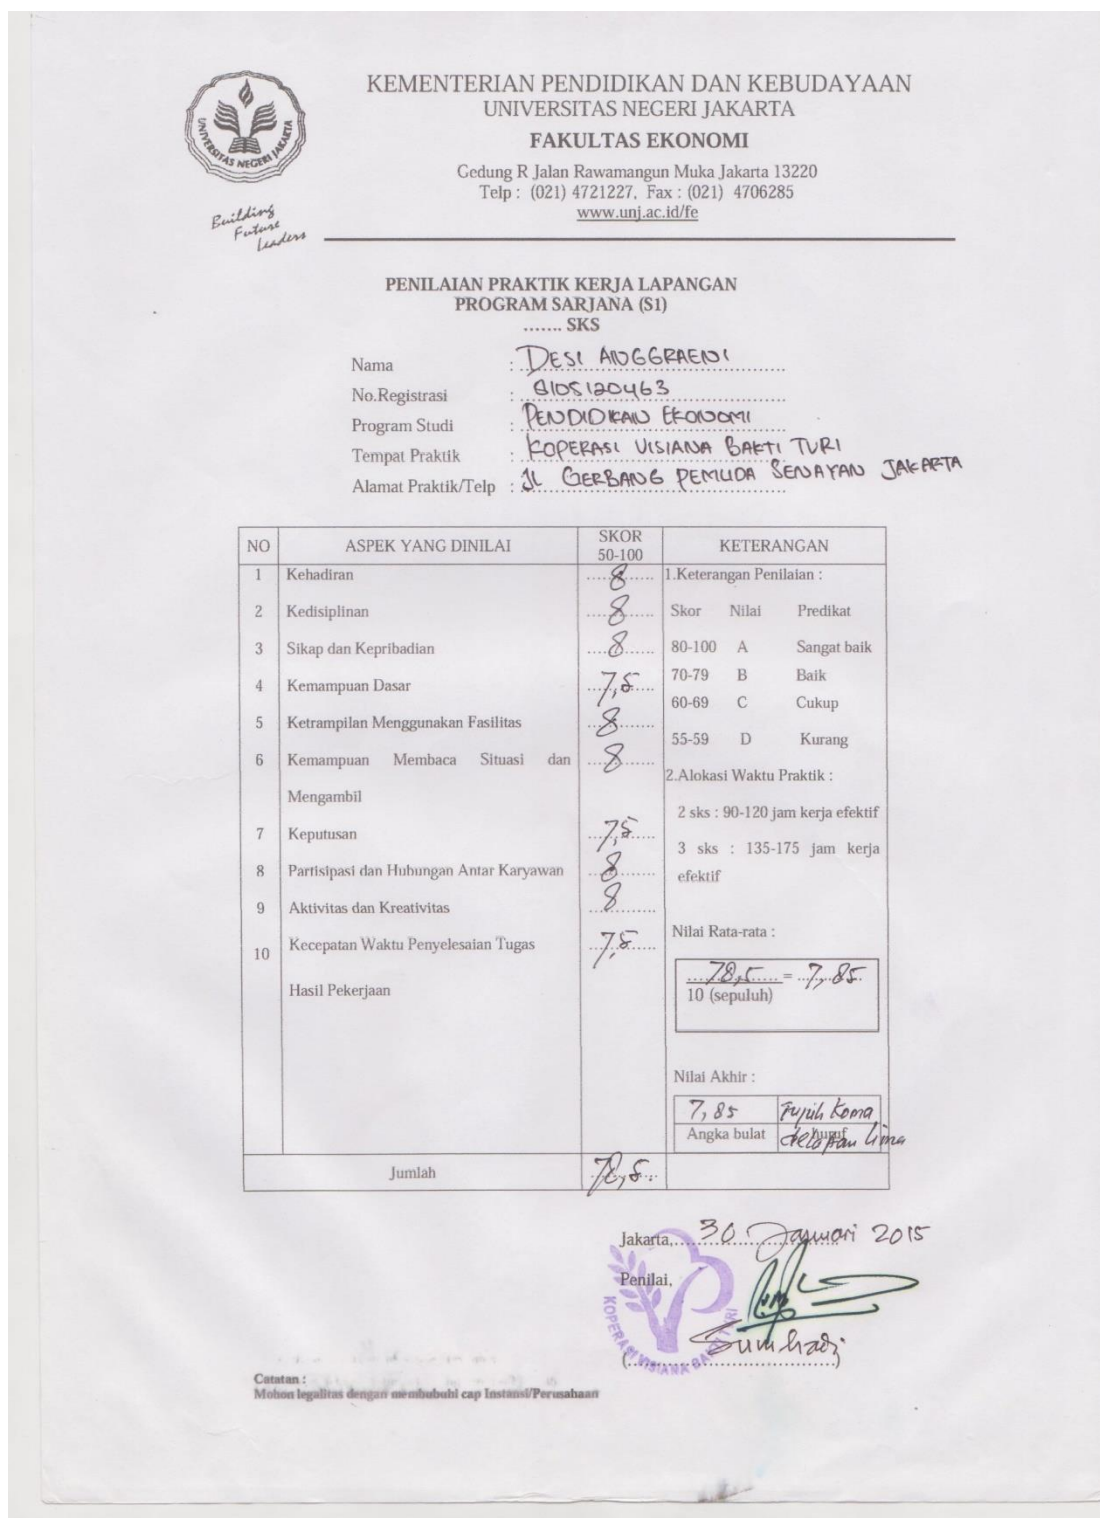 UNIVERSITAS NEGERI JAKARTA
Building
Future
Leaders
KEMENTERIAN PENDIDIKAN DAN KEBUDAYAAN
UNIVERSITAS NEGERI JAKARTA
FAKULTAS EKONOMI
Gedung R Jalan Rawamangun Muka Jakarta 13220
Telp : (021) 4721227, Fax : (021) 4706285
www.unj.ac.id/fe
PENILAIAN PRAKTIK KERJA LAPANGAN
PROGRAM SARJANA (S1)
....... SKS
Nama : DESI ANGGRAENI
No.Registrasi : 8105120463
Program Studi : PENDIDIKAN EKONOMI
Tempat Praktik : KOPERASI VISIANA BAKTI TURI
Alamat Praktik/Telp : JL GERBANG PEMUDA SENAYAN JAKARTA
NO ASPEK YANG DINILAI SKOR 50-100 KETERANGAN
1 Kehadiran 8 1.Keterangan Penilaian :
2 Kedisiplinan 8 Skor Nilai Predikat
3 Sikap dan Kepribadian 8 80-100 A Sangat baik
4 Kemampuan Dasar 7,5 70-79 B Baik
60-69 C Cukup
5 Ketrampilan Menggunakan Fasilitas 8
55-59 D Kurang
6 Kemampuan Membaca Situasi dan 8
2.Alokasi Waktu Praktik :
Mengambil
2 sks : 90-120 jam kerja efektif
7 Keputusan 7,5
3 sks : 135-175 jam kerja
8 Partisipasi dan Hubungan Antar Karyawan 8 efektif
9 Aktivitas dan Kreativitas 8
Nilai Rata-rata :
10 Kecepatan Waktu Penyelesaian Tugas 7,5
78,5 = 7,85
10 (sepuluh)
Hasil Pekerjaan
Nilai Akhir :
7,85 Tujuh Koma
Angka bulat huruf delapan lima
Jumlah 78,5
Jakarta, 30 Januari 2015
Penilai,
KOPERASI VISIANA BAKTI TURI
(Sumhadi)
Catatan :
Mohon legalitas dengan membubuhi cap Instansi/Perusahaan